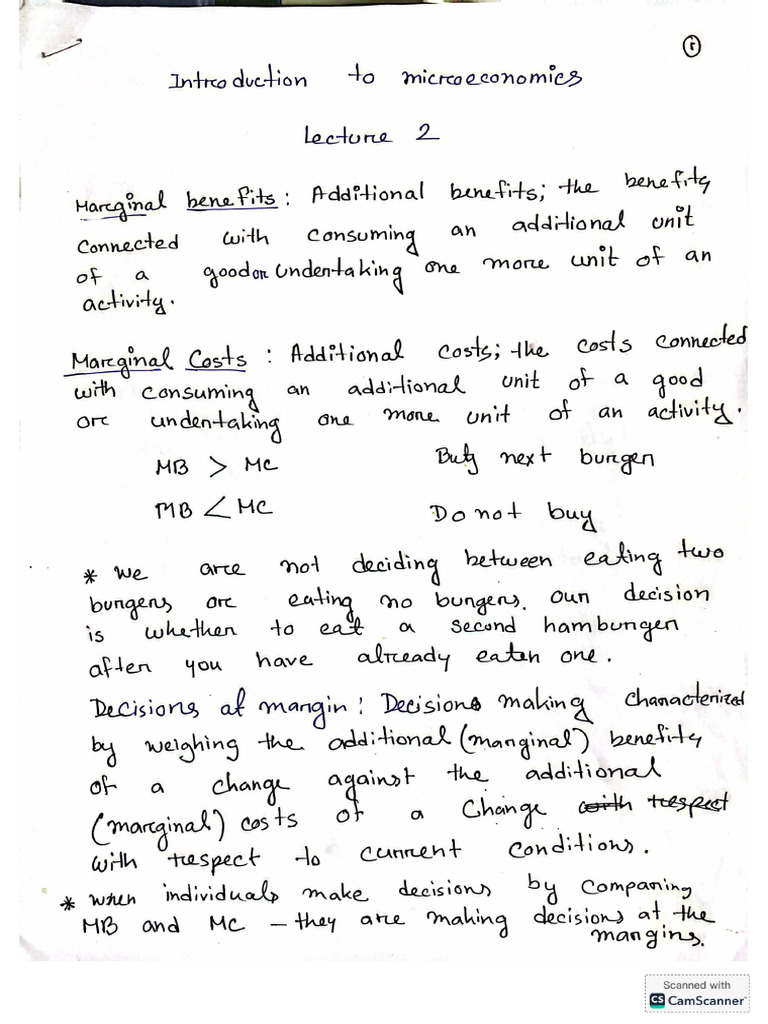 ①
Introduction to microeconomics
Lecture 2
Marginal benefits: Additional benefits; the benefits
connected with consuming an additional unit
of a good or undertaking one more unit of an
activity.
Marginal Costs: Additional costs; the costs connected
with consuming an additional unit of a good
or undertaking one more unit of an activity.
MB > MC Buy next burger
MB < MC Do not buy
* We are not deciding between eating two
burgers or eating no burgers. our decision
is whether to eat a second hamburger
after you have already eaten one.
Decisions at margin: Decisions making characterized
by weighing the additional (marginal) benefits
of a change against the additional
(marginal) costs of a change with respect
with respect to current conditions.
* when individuals make decisions by comparing
MB and MC - they are making decisions at the
margins.
Scanned with
CS CamScanner